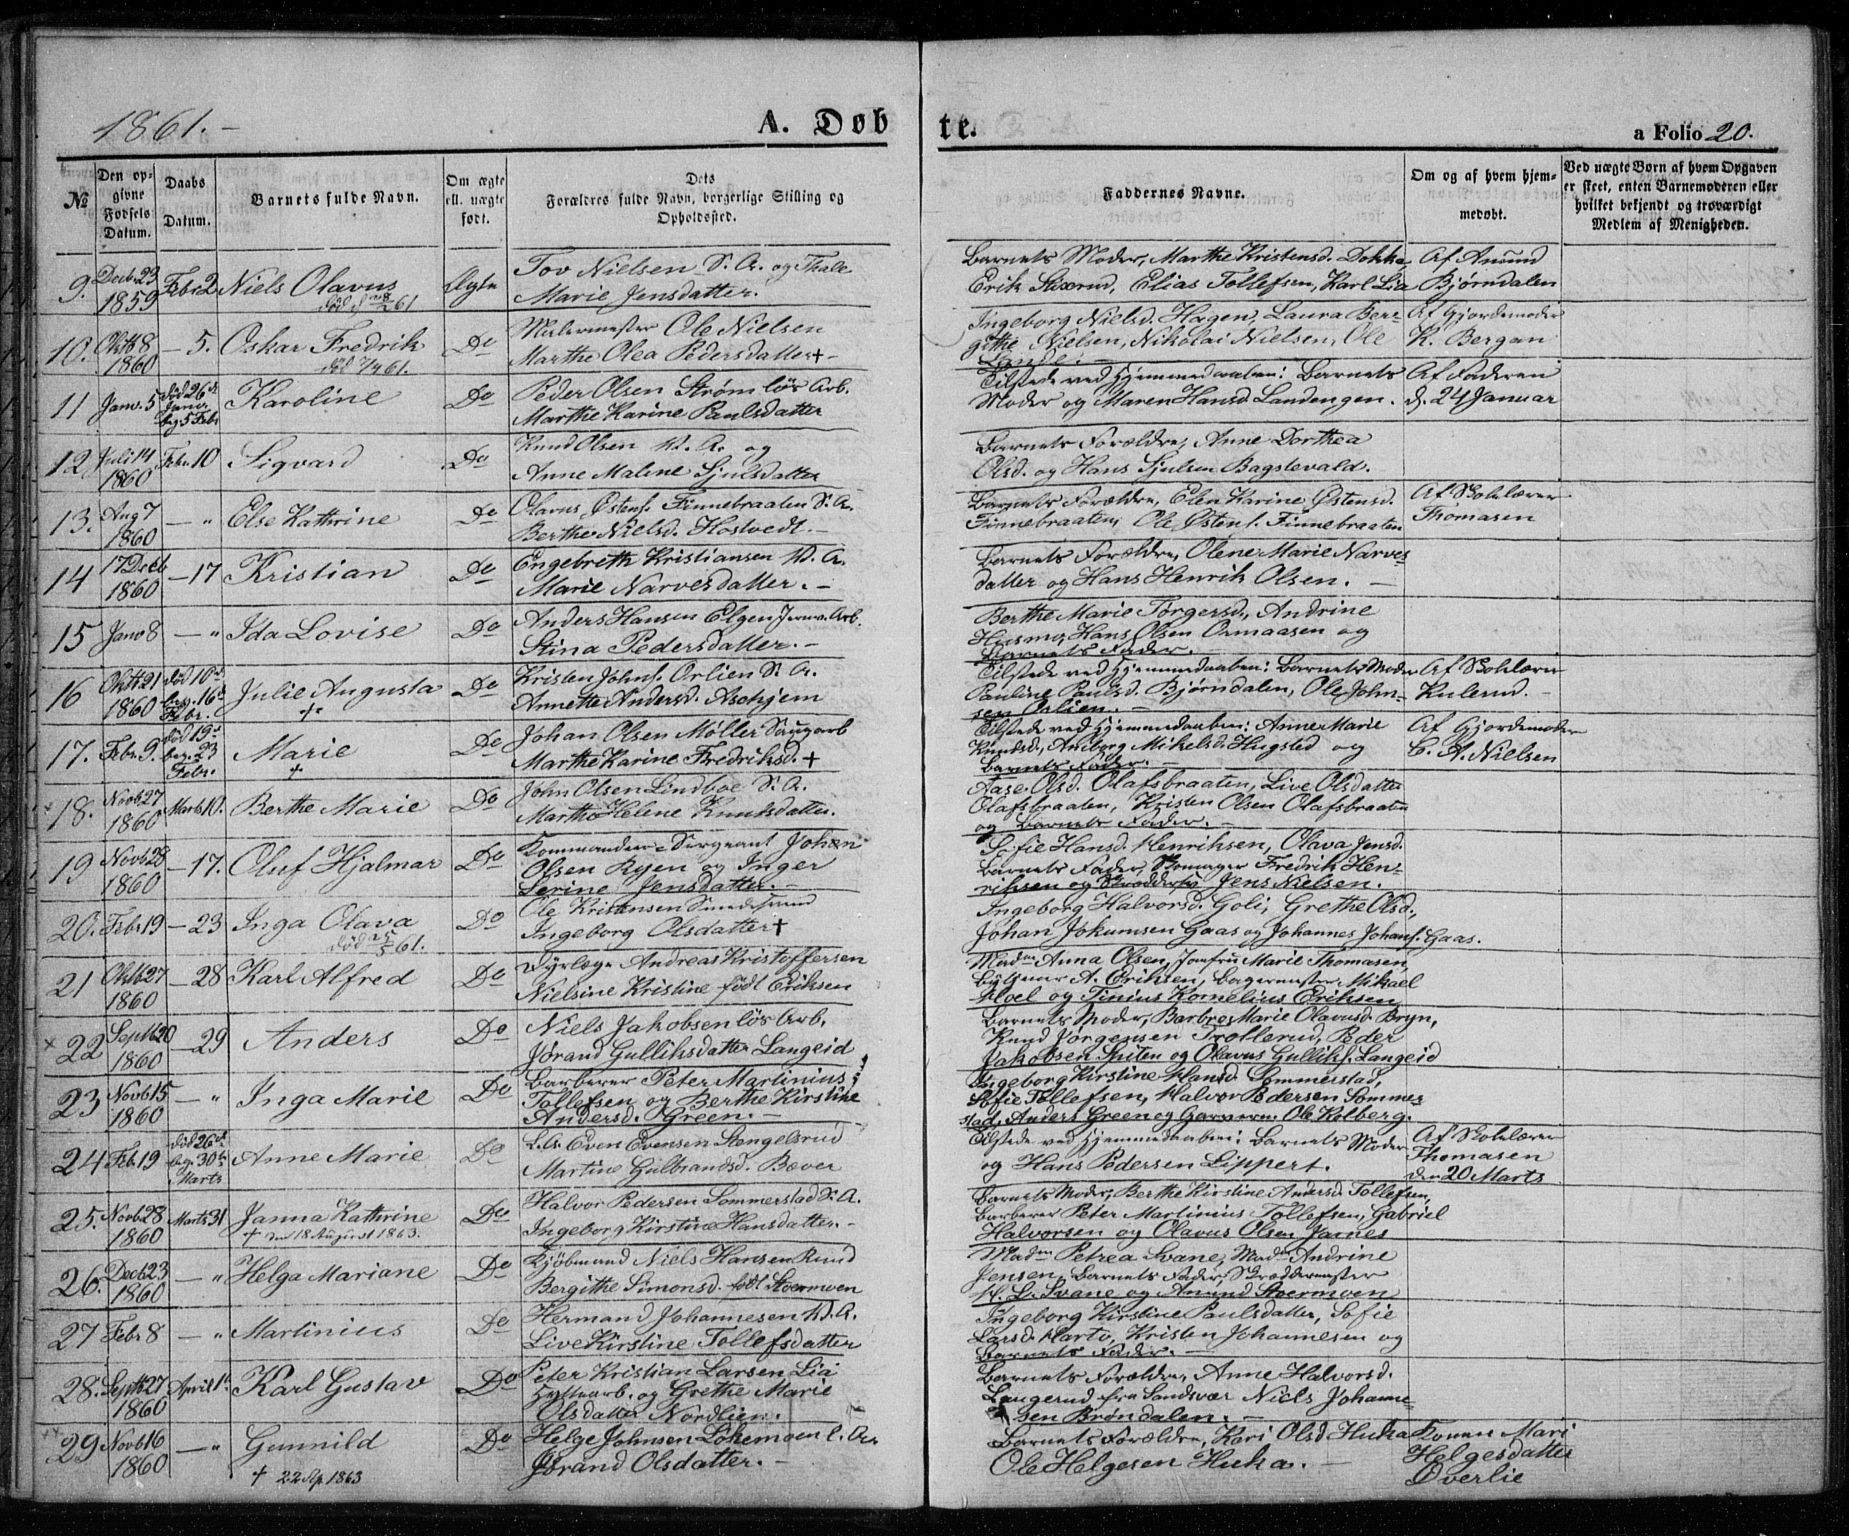 1861.-
A. Døbte.
a Folio 20.
№
Den opgivne Fødsels Datum.
Daabs Datum.
Barnets fulde Navn.
Om ægte ell. uægte født.
Dets Forældres fulde Navn, borgerlige Stilling og Opholdssted.
Faddernes Navne.
Om og af hvem hjemmedøbt.
Ved uægte Børn af hvem Opgaven er skeet, enten Barnemoderen eller hvilket bekjendt og troværdigt Medlem af Menigheden.
9. Decb 23 1859 Feb. 2 Niels Olavus Ægte
Tov Nielsen S. A. og Thale
Marie Jensdatter.
Barnets Moder, Marthe Kristensd. Dokka,
Erik, Elias Tollefsen, Karl Lia
Af Amund
Bjørndalen
10. Oktb 8 1860 – 5. Oskar Fredrik Do
død 7/4 61.
Ole Nielsen
Marthe Olea Pedersdatter +
Ingeborg Nielsd. Hagen, Laura Ber-
githe Nielsen, Nikolai Nielsen, Ole
Lande. –
Af Gjordemoder
K. Bergan
11 Janv. 5 død 26de Janv. beg. 5 Febr Karoline Do
Peder Olsen Strøm løs Arb.
Marthe Karine Paulsdatter
Tilstede ved Hjemmedaaben: Barnets
Moder og Maren Hansd. Landengen.
Af Faderen
d. 24 Januar
12 Juli 14 1860 Febr. 10 Sigvard Do
Knud Olsen W. A. og
Anne Malene Sjulsdatter
Barnets Forældre, Anne Dorthea
Olsd. og Hans Sjulsen Bagstevald.
13. Aug 7 1860 – " Else Kathrine Do
Olavus Østens. Finnebraaten S. A.
Berthe Nielsd. Hostvedt –
Barnets Forældre, Elen Karine Østensd.
Finnebraaten, Ole Østens. Finnebraaten
Af Skolelærer
Thomasen
14 17 Decb 1860 – 17 Kristian Do
Engebreth Kristiansen W. A.
Marie Narvesdatter. –
Barnets Forældre, Olene Marie Narves
datter og Hans Henrik Olsen. –
15 Janv 8 – " Ida Lovise Do
Anders Hansen Elgen Jernv. Arb.
Stina Pedersdatter. –
Berthe Marie Torgersd., Andrine
Husmo, Hans Olsen Ormaasen og
Barnets Fader. –
16 Oktb 21 1860 død 10de beg. 16de Febr. Julie Augusta + Do
Kristen Johns. Orlien S. A.
Annette Andersd. Asohjem
Tilstede ved Hjemmedaaben: Barnets Moder
Pauline Paulsd. Bjørndalen, Ole John-
sen Orlien. –
Af Skolelærer
Kulerud. –
17. Febr. 9. død 19de beg. 23 Febr. Marie + Do
Johan Olsen Møller Saugarb
Marthe Karine Fredriksd. +
Tilstede ved Hjemmedaaben: Anne Marie
Knudsd., Anborg Mikelsd. Hugsted og
Barnets Fader. –
Af Gjordemoder
C. A. Nielsen
18. Novb 27 1860 Marts 10. Berthe Marie Do
John Olsen Lindboe S. A.
Marthe Helene Knudsdatter.
Aase Olsd. Olafsbraaten, Live Olsdatter
Olafsbraaten, Kristen Olsen Olafsbraaten
og Barnets Fader. –
19 Novb 28 1860 – 17. Oluf Hjalmar Do
Kommandeer-Sergeant Johan
Olsen Ryen og Inger
Serine Jensdatter. –
Sofie Hansd. Henriksen, Olava Jensd.
Barnets Fader, Skomager Fredrik Hen-
riksen og Skrædder Jens Nielsen.
20. Feb. 19 – 23 Inga Olava Do
død 25/5 61.
Ole Kristensen
Ingeborg Olsdatter +
Ingeborg Halvorsd. Goli, Grethe Olsd.,
Johan Jokumsen Gaas og Johannes Johans. Gaas.
21 Oktb 27 1860 – 28 Karl Alfred Do
Dyrlæge Andreas Kristoffersen
Nielsine Kristine født Eriksen
Madm Anna Olsen, Jomfru Marie Thomasen,
A. Eriksen, Bagermester Mikael
Moel og Tinius Kornelius Eriksen
22 Septb 20 1860 – 29 Anders Do
Niels Jakobsen løs Arb.
Jørand Gulliksdatter Langeid
Barnets Moder, Barbro Marie Olavusd. Bryn,
Knud Jørgensen Trollerud, Peder
Jakobsen Spiten og Olavus Gulliks. Langeid
23 Novb 15 1860 – " Inga Marie Do
Barberer Peter Martinius
Tollefsen og Berthe Kirstine
Andersd. Green. –
Ingeborg Kirstine Hansd. Sommerstad,
Sofie Tollefsen, Halvor Pedersen Sommer-
stad, Anders Green og Garversv. Ole Kolberg.
24 Feb. 19 død 26de beg. 30te Marts Anne Marie Do
Even Evensen Stengelsrud
Martine Gulbrandsd. Bæver
Tilstede ved Hjemmedaaben: Barnets Moder
og Hans Pedersen Lippert.
Af Skolelærer
Thomasen
den 20 Marts
25. Novb 28 1860 Marts 31 Janna Kathrine Do
+ den 18 August 1863.
Halvor Pedersen Sommerstad S. A.
Ingeborg Kirstine Hansdatter. –
Barnets Moder, Berthe Kirstine Andersd. Tollefsen,
Barberer Peter Martinius Tollefsen, Gabriel
Halvorsen og Olavus Olsen Jarnes
26. Decb 23 1860 – " Helga Mariane Do
Kjøbmand Niels Hansen Ruud
Bergithe Simonsd. født Stoermoen
Madm Petrea Svane, Madm Andrine
Jensen, Barnets Fader, Skræddermester
H. L. Svane og Amund Stoermoen
27 Feb. 8 – " Martinius Do
Hermand Johannesen W. A.
Live Kirstine Tollefsdatter
Ingeborg Kirstine Paulsdatter, Sofie
Larsd. Harto, Kristen Johannesen og
Barnets Fader. –
28. Septb 27 1860 April 1ste Karl Gustav Do
Peter Kristian Larsen Lia
Hyttearb. og Grethe Marie
Olsdatter Nordlien.
Barnets Forældre, Anne Halvorsd.
Langerud fra Sandsvær Niels Johanne-
sen Brøndalen. –
29 Novb 16 1860 – " Gunnild Do
+ 22 Ap 1863
Helge Johnsen Lokemoen
Jørand Olsdatter. –
Barnets Forældre, Kari Olsd Huka
Ole Helgesen Huka. –
Konen Mari
Helgesdatter
Øverlie